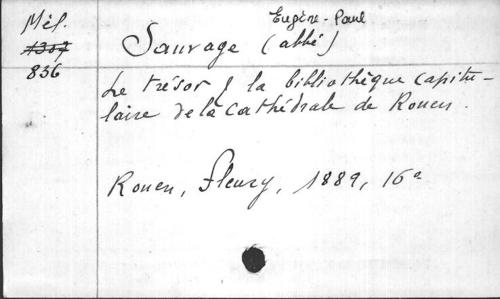 Mél.
1307
836
Eugène-Paul
Sauvage (abbé)
Le trésor & la bibliothèque capitu-
laire de la Cathédrale de Rouen.
Rouen, Fleury, 1889, 16°